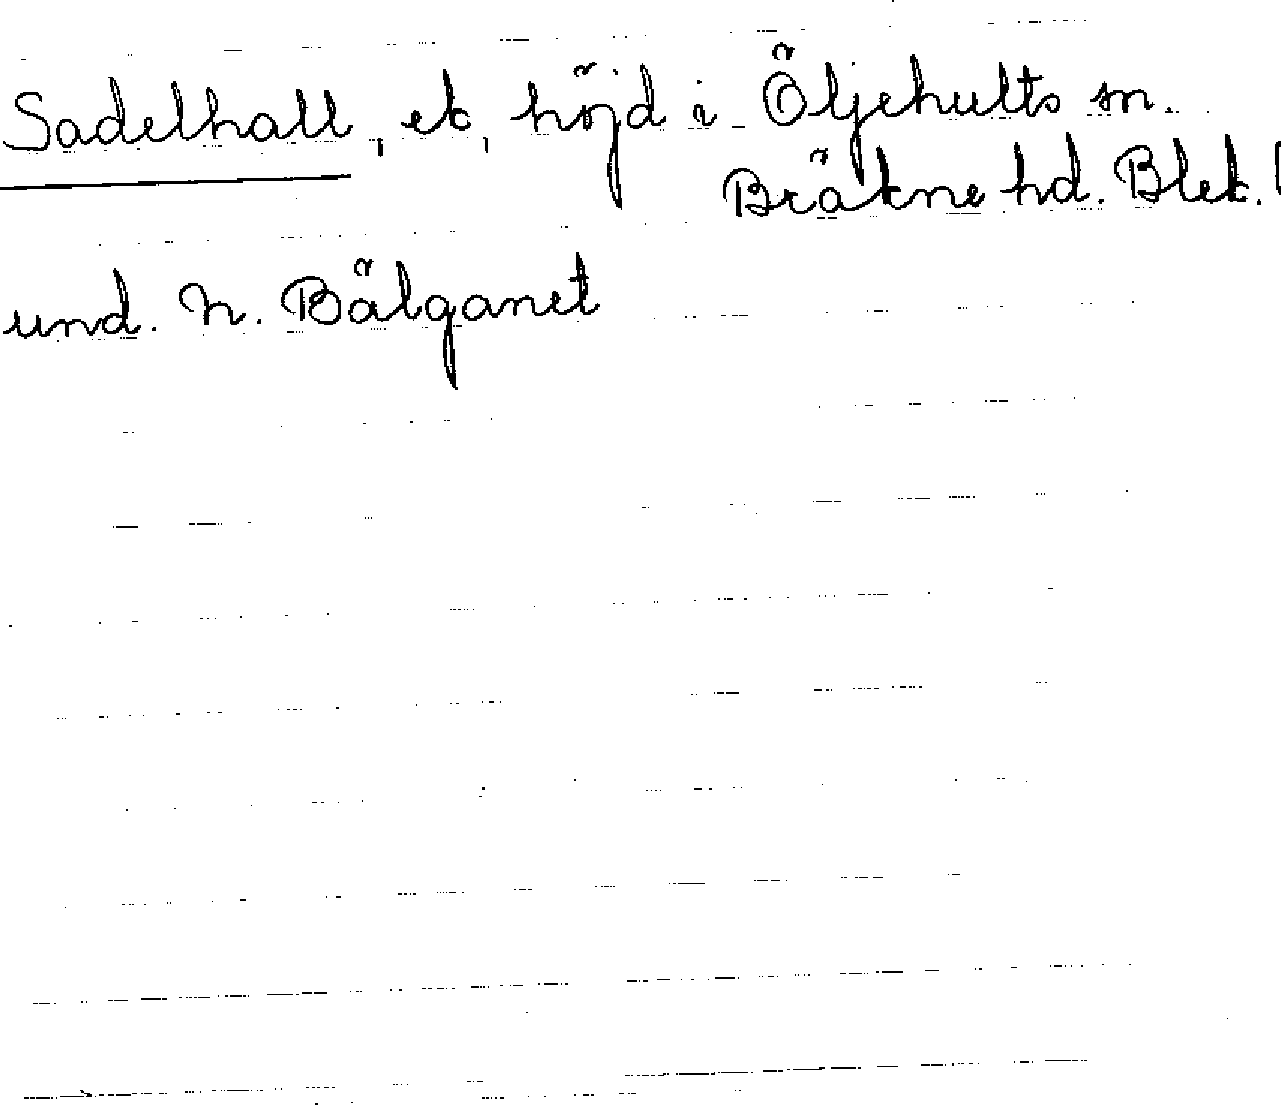 Sadelhall, ek, höjd i Öljehults sn.
Bräkne hd. Blek.
und. N. Bälganet